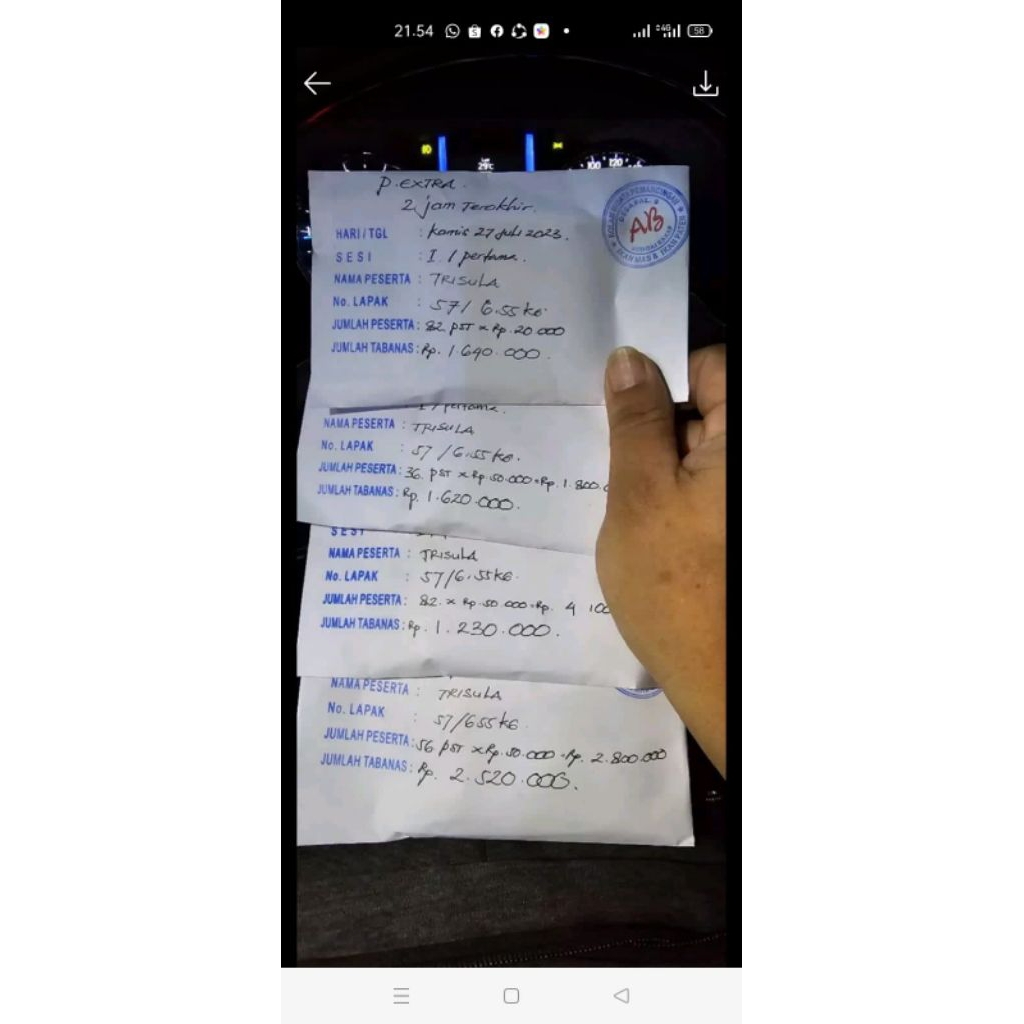 21.54
4G
58
29°C
100 120
P. EXTRA.
2 jam Terakhir.
HARI / TGL : Kamis 27 Juli 2023.
SESI : I / pertama.
NAMA PESERTA : TRISULA
No. LAPAK : 57 / 6.55 kg.
JUMLAH PESERTA : 82 PST x Rp. 20.000
JUMLAH TABANAS : Rp. 1.640.000.
AB
I / pertama.
NAMA PESERTA : TRISULA
No. LAPAK : 57 / 6.55 kg.
JUMLAH PESERTA : 36 PST x Rp. 50.000 = Rp. 1.800.0
JUMLAH TABANAS : Rp. 1.620.000.
SESI
NAMA PESERTA : TRISULA
No. LAPAK : 57 / 6.55 kg.
JUMLAH PESERTA : 82 x Rp. 50.000 = Rp. 4 100
JUMLAH TABANAS : Rp. 1.230.000.
NAMA PESERTA : TRISULA
No. LAPAK : 57 / 655 kg.
JUMLAH PESERTA : 56 PST x Rp. 50.000 = Rp. 2.800.000
JUMLAH TABANAS : Rp. 2.520.000.